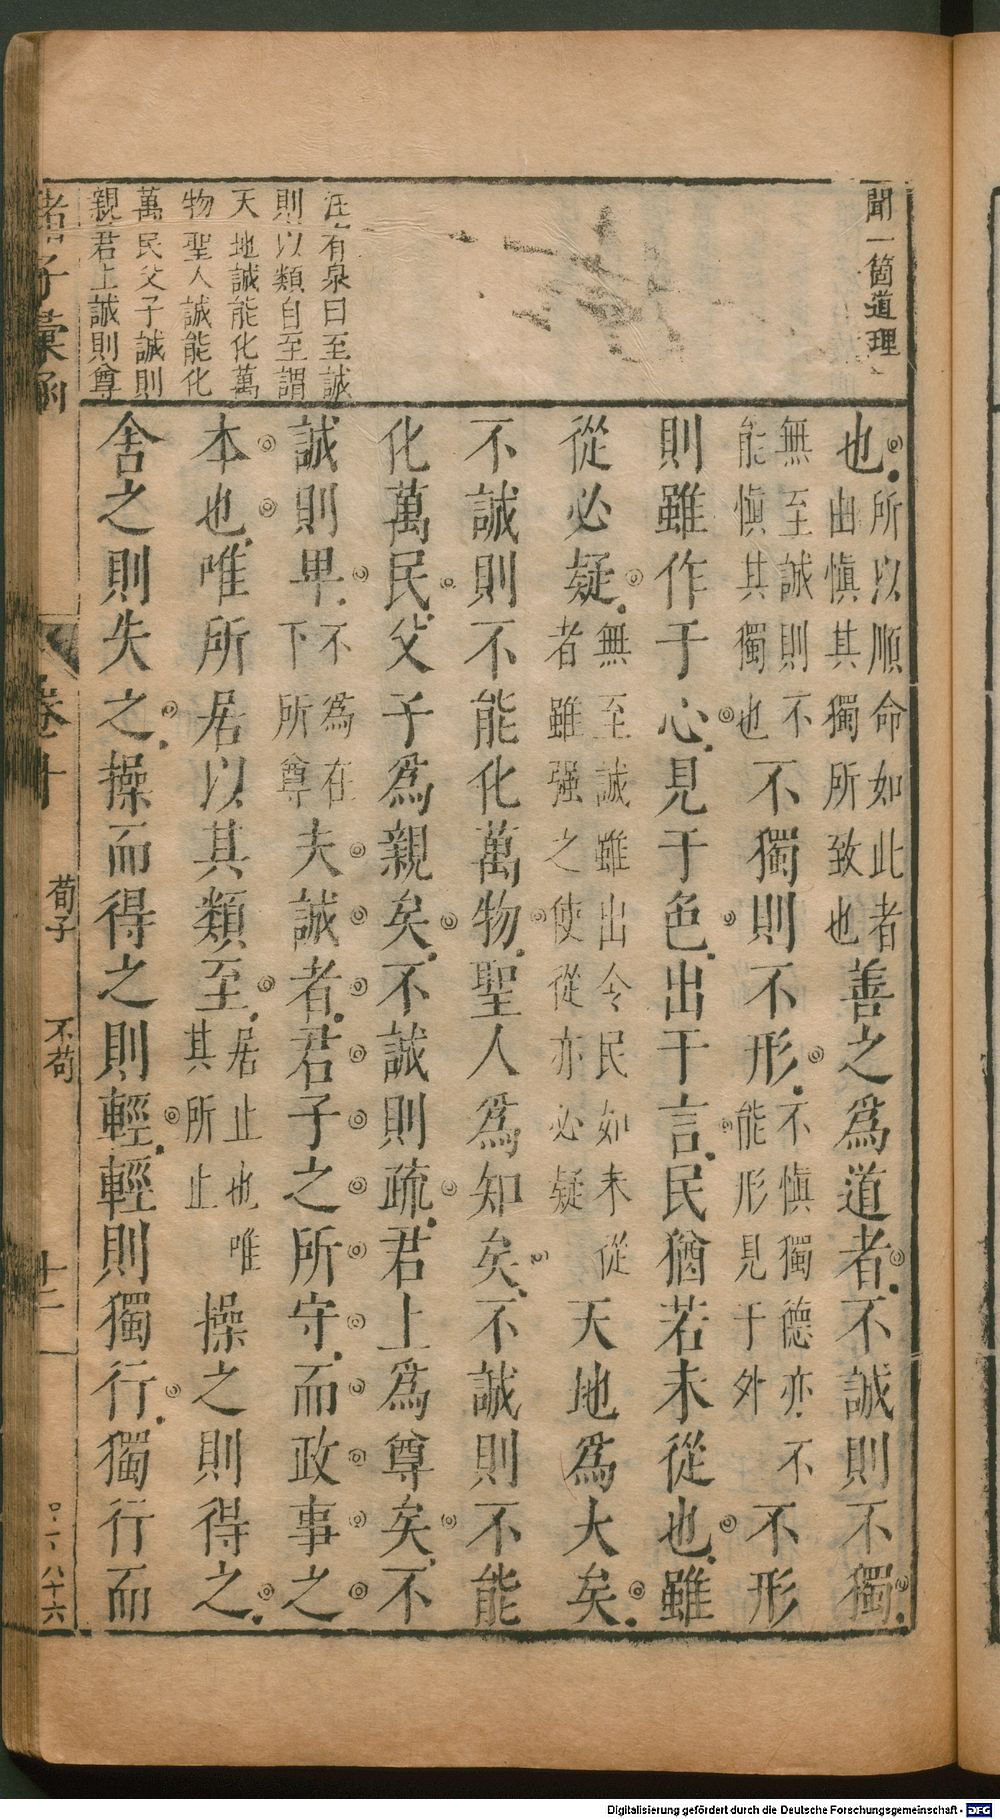 聞一箇道理
汪有泉曰至誠
則以類自至謂
天地誠能化萬
物聖人誠能化
萬民父子誠則
親君上誠則尊
也所以順命如此者由愼其獨所致也善之爲道者不誠則不獨
無至誠則不能愼其獨也不獨則不形不愼獨德亦不能形見于外不形
則雖作于心見于色出于言民猶若未從也雖
從必疑無至誠雖出令民如未從者雖强之使從亦必疑天地爲大矣
不誠則不能化萬物聖人爲知矣不誠則不能
化萬民父子爲親矣不誠則疏君上爲尊矣不
誠則卑不為在下所尊夫誠者君子之所守而政事之
本也唯所居以其類至居止也唯其所止操之則得之
舍之則失之操而得之則輕輕則獨行獨行而
諸子彙函
卷十
荀子
不苟
十二
口一八十六
Digitalisierung gefördert durch die Deutsche Forschungsgemeinschaft - DFG